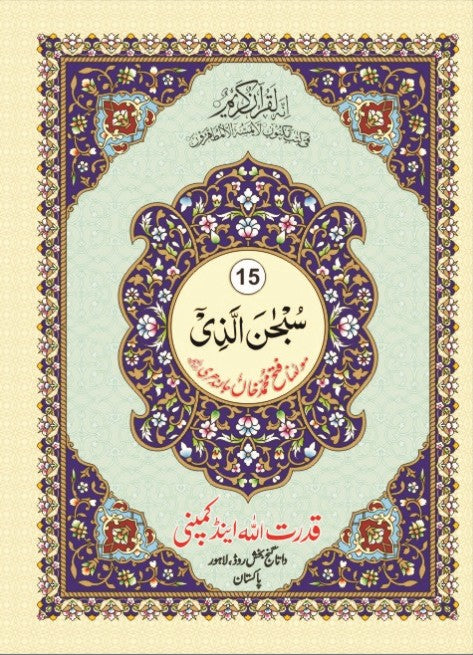 انہ لقرآن کریم
فی کتب مکنون لا یمسہ الا المطھرون
15
سُبْحٰنَ الَّذِیْۤ
مولانا فتح محمد خان جالندھری
قدرت اللہ اینڈ کمپنی
داتا گنج بخش روڈ، لاہور
پاکستان